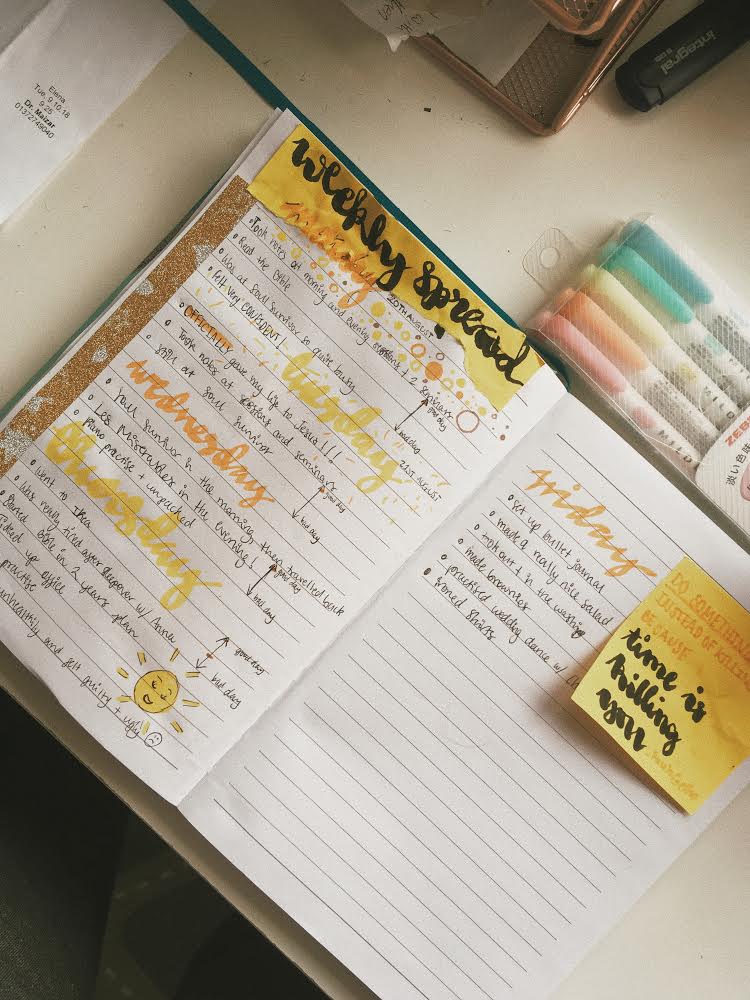 Elena
Tue, 9.10.18
9.25
Dr. Malzar
01372749040
integral
weekly spread
20TH AUGUST
Took notes at morning and evening sessions + 2 seminars
Read the Bible
Was at Soul Survivor so quite busy
Felt very CONFIDENT!
good day
bad day
tuesday
21ST AUGUST
OFFICIALLY gave my life to Jesus!!!
Took notes at sessions and seminars
Still at soul survivor
good day
bad day
wednesday
Soul Survivor in the morning, then travelled back
Les Misérables in the evening!
Piano practise + unpacked
good day
bad day
thursday
Went to Ikea
Was really tired after sleepover w/ Anna
Started Bible in 2 years plan
Tidied up office
practise
unhealthily and felt guilty + ugly
good day
bad day
friday
set up bullet journal
made a really nice salad
took out + in the washing
made brownies
practised wedding dance w/
ironed shirts
DO SOMETHING
INSTEAD OF KILLING
BECAUSE
time is
killing
you
ZEB
MILD